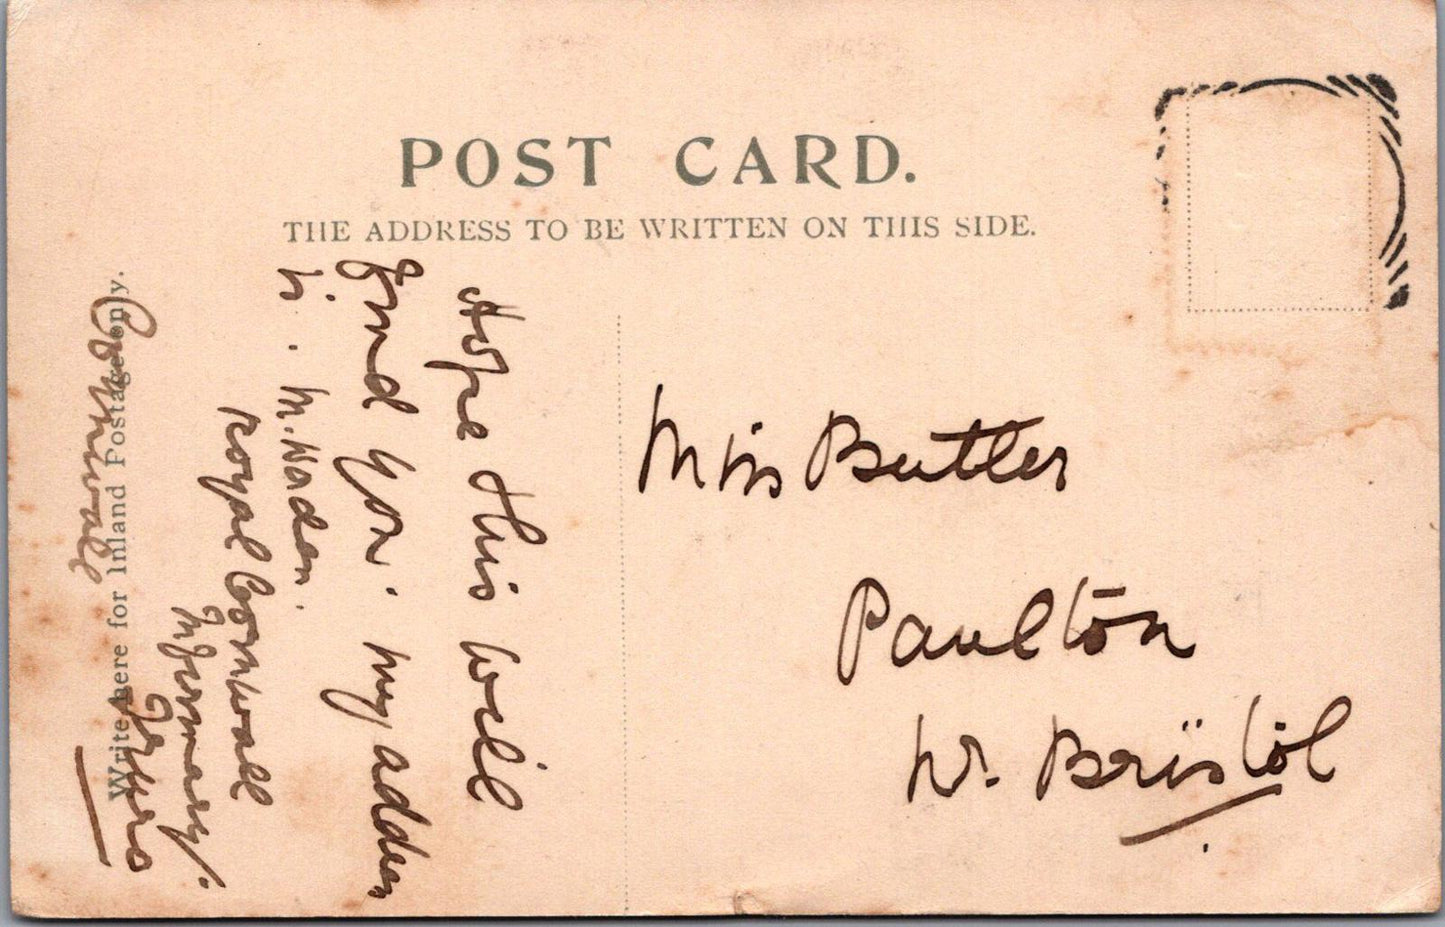 POST CARD.
THE ADDRESS TO BE WRITTEN ON THIS SIDE.
Write here for Inland Postage only.
Hope this will
find you. my address
is. M. Norden.
Royal Cornwall
Infirmary.
Truro
Cornwall
Miss Butler
Paulton
Nr. Bristol